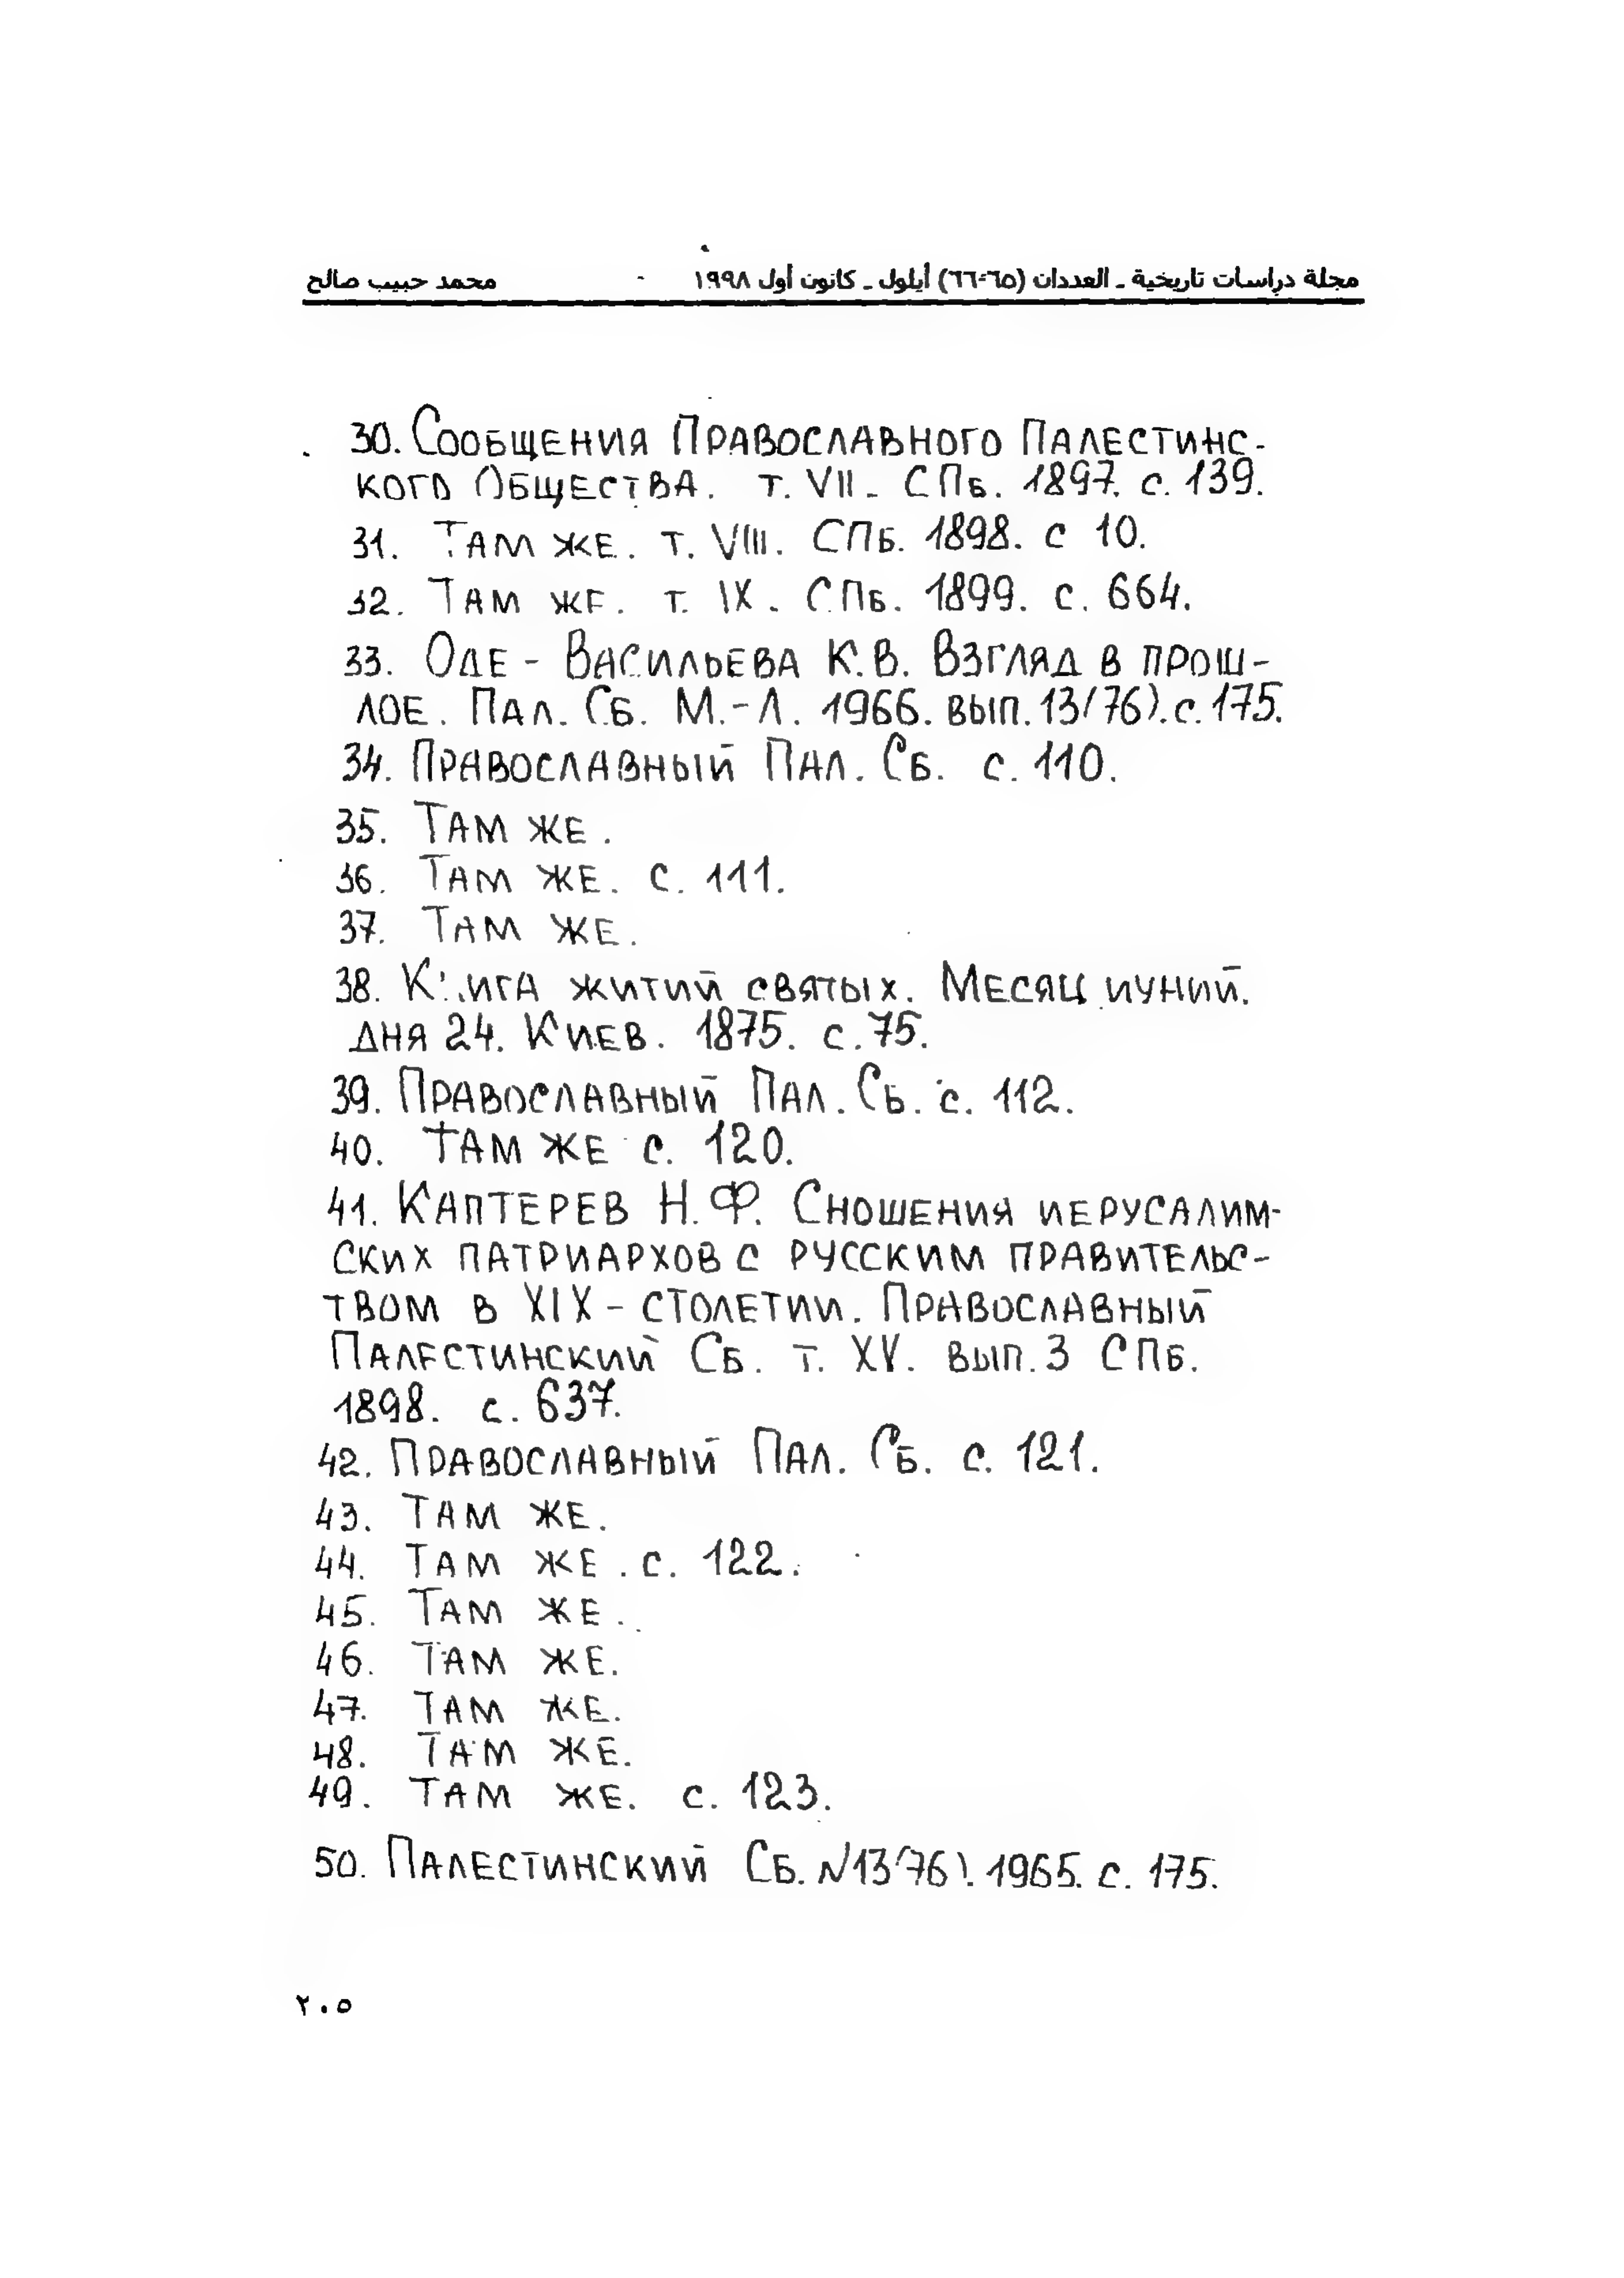 مجلة دراسات تاريخية ـ العددان (٦٥-٦٦) أيلول ـ كانون أول ١٩٩٨ محمد حبيب صالح
30. Сообщения Православного Палестинс-
кого Общества. т. VII. СПб. 1897. с. 139.
31. Там же. т. VIII. СПб. 1898. с 10.
32. Там же. т. IX. СПб. 1899. с. 664.
33. Оде - Васильева К.В. Взгляд в прош-
лое. Пал. Сб. М.-Л. 1966. вып. 13(76). с. 175.
34. Православный Пал. Сб. с. 110.
35. Там же.
36. Там же. с. 111.
37. Там же.
38. Книга житий святых. Месяц иуний.
дня 24. Киев. 1875. с. 75.
39. Православный Пал. Сб. с. 112.
40. Там же с. 120.
41. Каптерев Н.Ф. Сношения иерусалим-
ских патриархов с русским правительс-
твом в XIX - столетии. Православный
Палестинский Сб. т. XV. вып. 3 СПб.
1898. с. 637.
42. Православный Пал. Сб. с. 121.
43. Там же.
44. Там же. с. 122.
45. Там же.
46. Там же.
47. Там же.
48. Там же.
49. Там же. с. 123.
50. Палестинский Сб. N13(76). 1965. с. 175.
٢٠٥